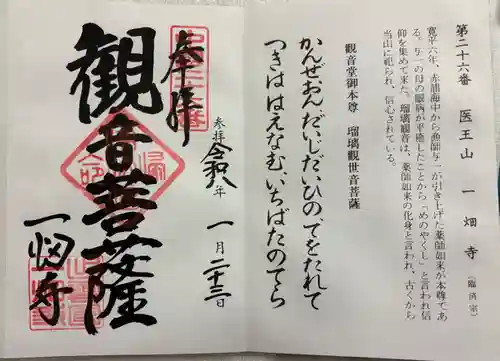 第二十六番 医王山 一畑寺 (臨済宗)
寛平六年、赤浦海中から漁師与一が引き上げた薬師如来が本尊であ
る。与一の母の眼病が平癒したことから「めのやくし」と言われ信
仰を集めて来た。瑠璃観音は、薬師如来の化身と言われ、古くから
当山に祀られ、信心されている。
観音堂御本尊 瑠璃観世音菩薩
かんぜおん、だいじだいひの、てをたれて
つきははえなむ、いちばたのてら
参拝 令和八年 一月二十三日
奉拝
観音菩薩
一畑寺